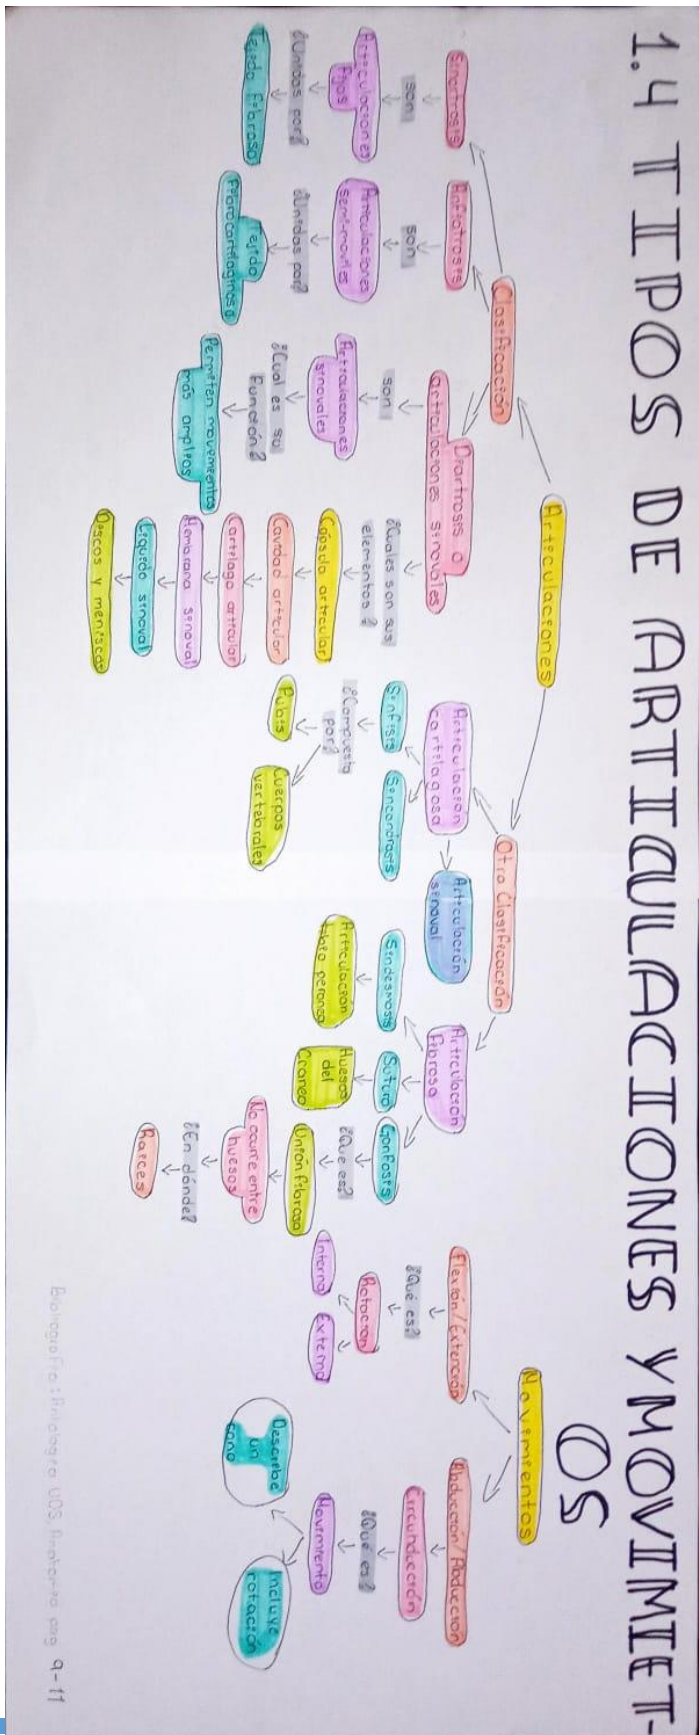 1.4 TIPOS DE ARTICULACIONES Y MOVIMIET-
OS
Articulaciones
Clasificación
Sinartrosis
son
Articulaciones
fijas
¿Unidas por?
Tejido fibroso
Anfiatrosis
son
Articulaciones
semi-moviles
¿Unidas por?
Tejido
Fibrocartilaginoso
Diartrosis o
articulaciones sinovales
son
Articulaciones
sinovales
¿Cual es su
Función?
Permiten movimientos
más amplios
¿Cuales son sus
elementos?
Cápsula articular
Cavidad articular
Cartílago articular
Membrana sinoval
Líquido sinoval
Discos y meniscos
Otra Clasificación
Articulación
cartilagosa
Sínfisis
¿Compuesta
por?
Pubis
Cuerpos
vertebrales
Sincondrosis
Articulación
sinoval
Articulación
fibrosa
Sindesmosis
Articulación
tibio peronea
Sutura
Huesos
del
Craneo
Gonfosis
¿Que es?
Unión fibrosa
No ocurre entre
huesos
¿En dónde?
Raíces
Movimientos
Flexión/Extención
¿Qué es?
Rotación
Interna
Externa
Abducción/Aducción
Circunducción
¿Qué es?
Movimiento
Describe
un
cono
Incluye
rotación
Bibliografía: Antología UDS, Anatomía pag 9-11